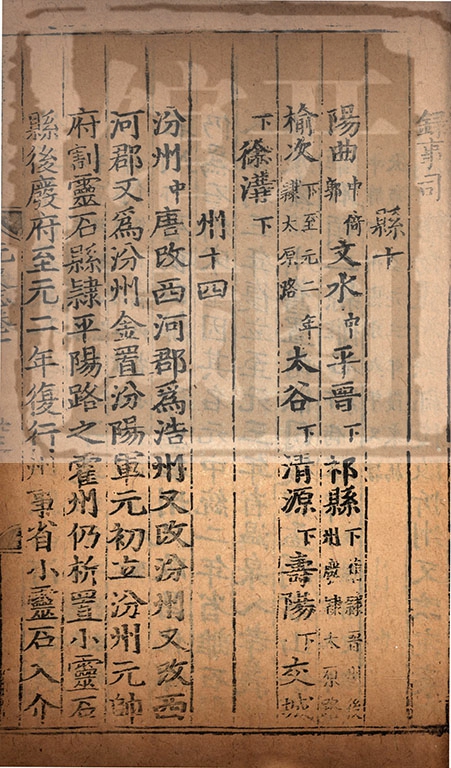 錄事司
縣十
陽曲中倚郭文水中平晉下祁縣下舊隸晉州後州廢隸太原路
榆次下至元二年隸太原路太谷下清源下壽陽下交城
下徐溝下
州十四
汾州中唐改西河郡爲浩州又改汾州又改西
河郡又爲汾州金置汾陽軍元初立汾州元帥
府割靈石縣隸平陽路之霍州仍析置小靈石
縣後廢府至元二年復行州事省小靈石入介